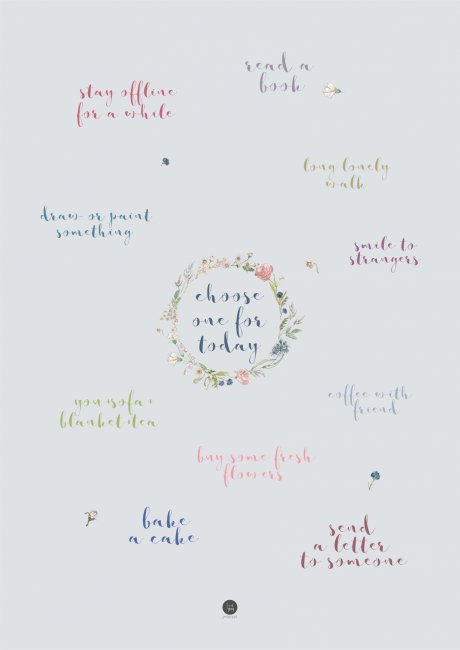 read a
book
stay offline
for a while
long lonely
walk
draw or paint
something
smile to
strangers
choose
one for
today
you+sofa+
blanket+tea
coffee with
friend
buy some fresh
flowers
bake
a cake
send
a letter
to someone